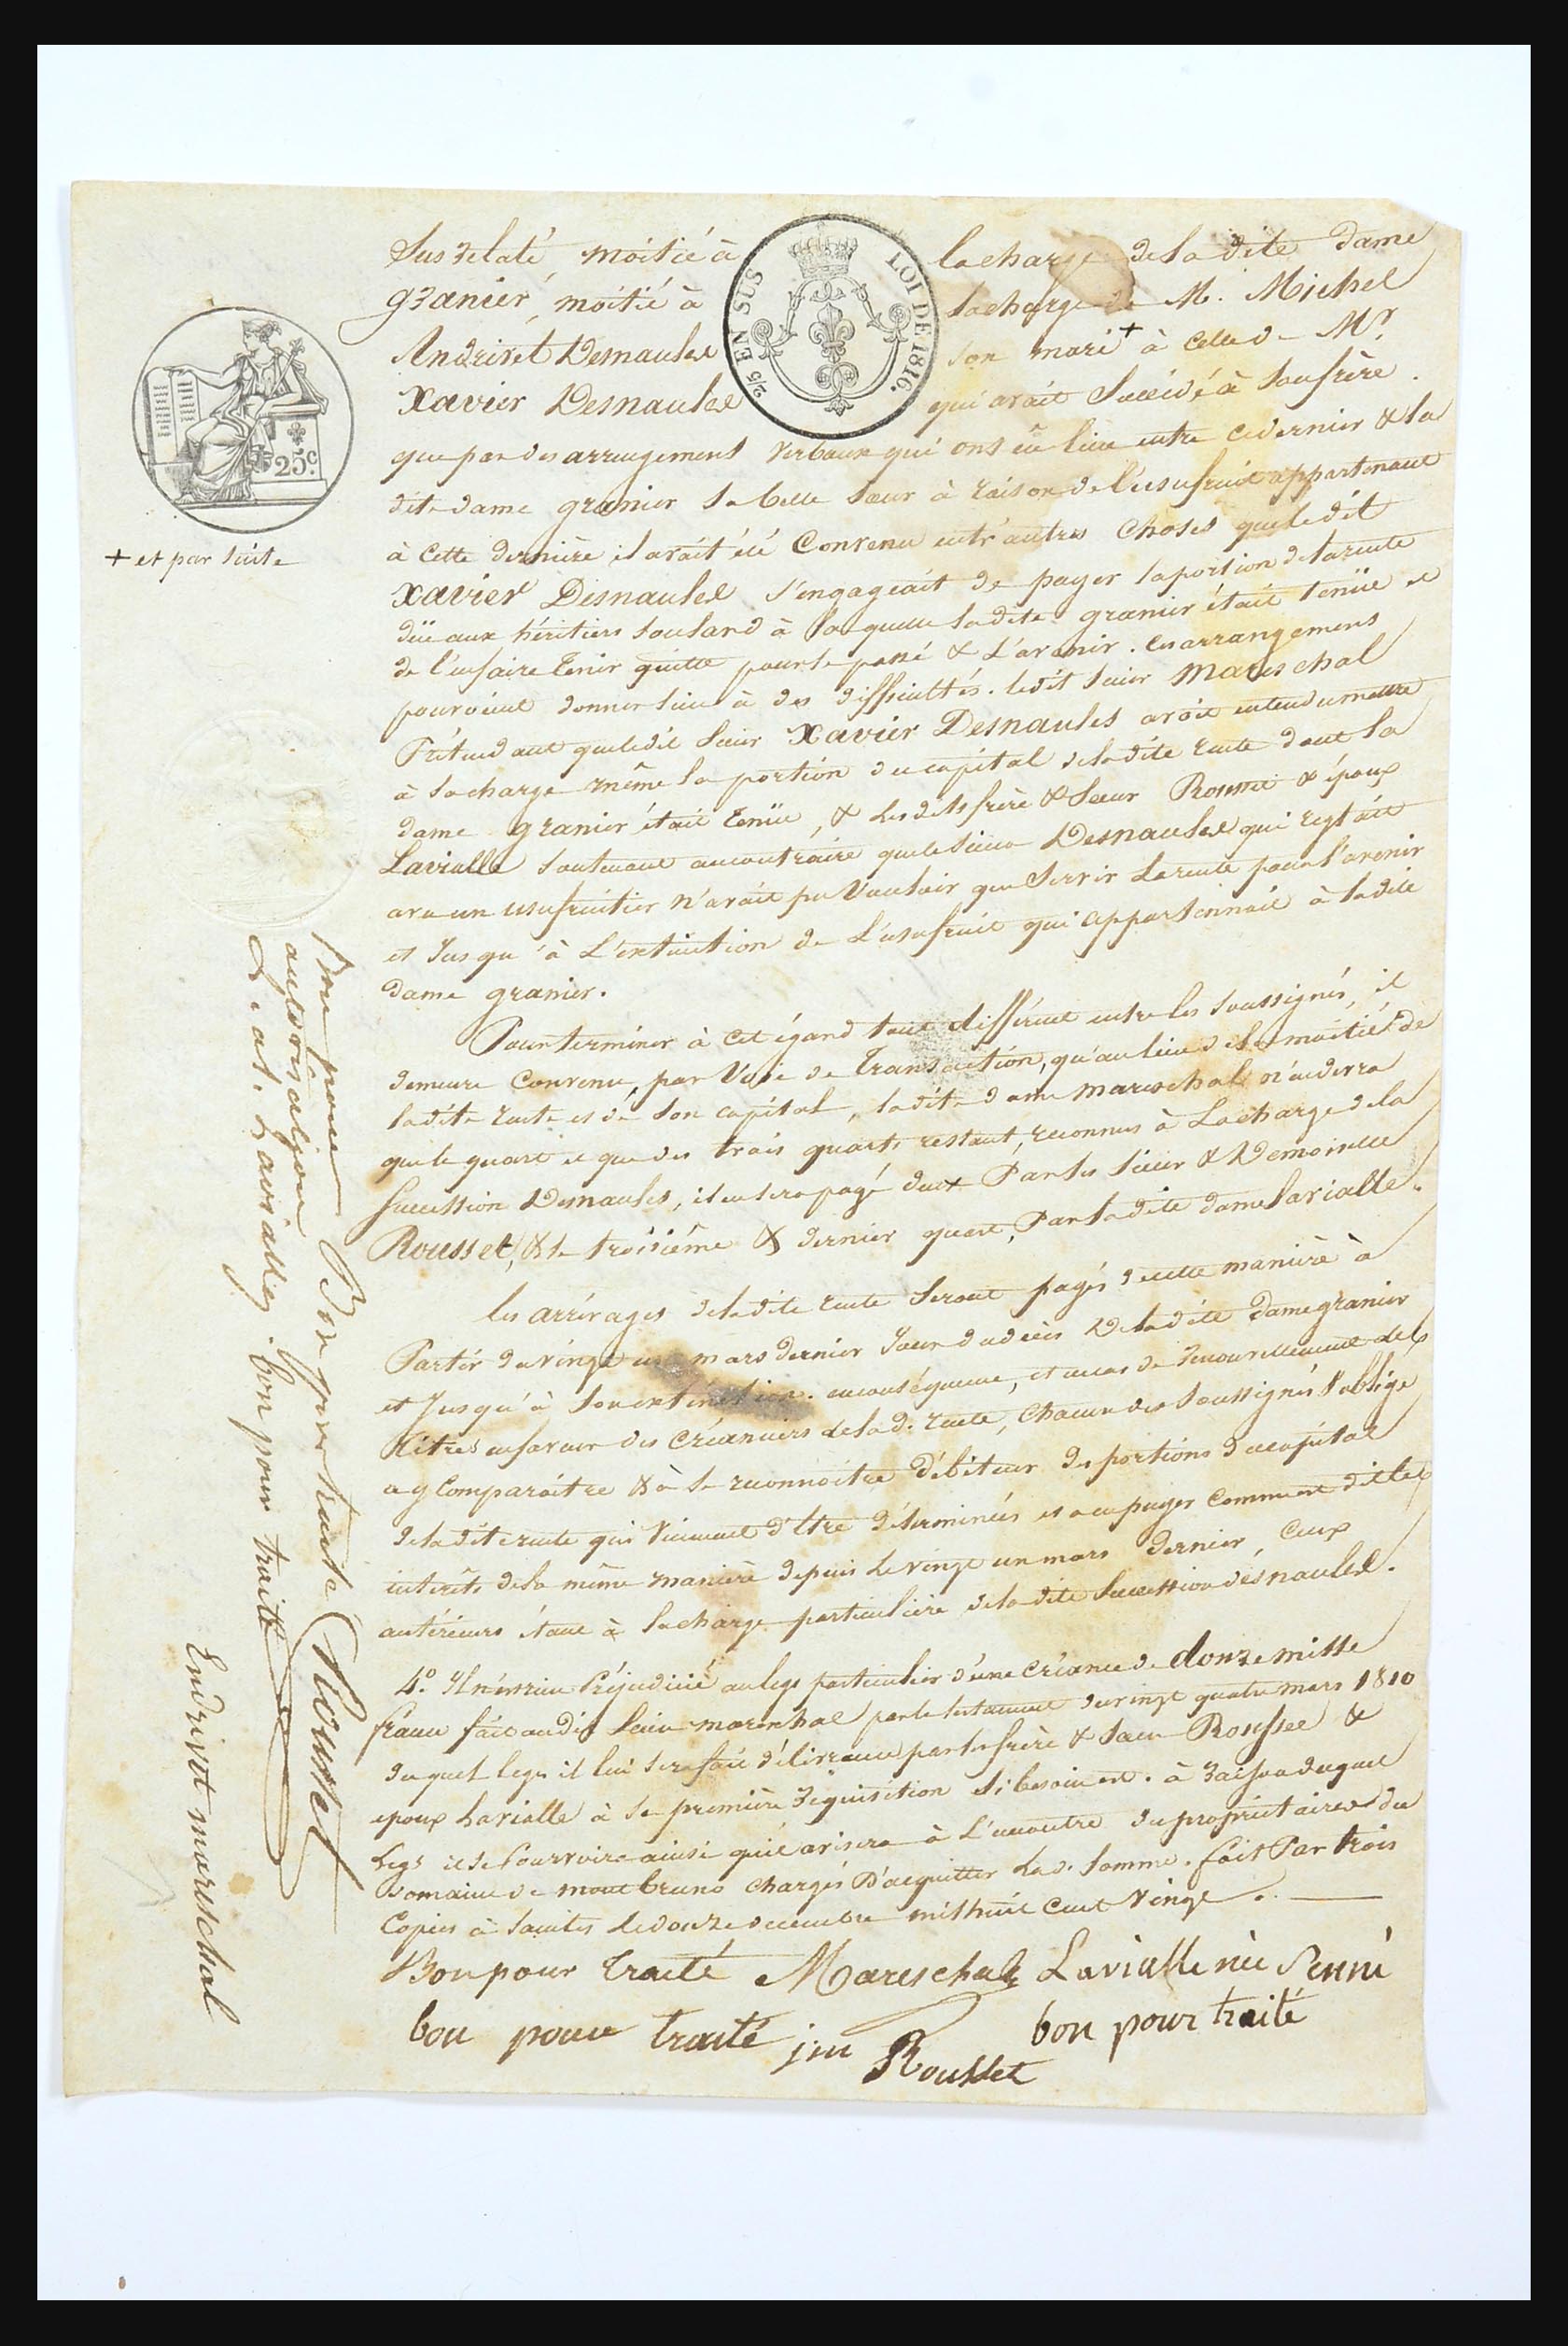 Sus relaté moitié à la charge de la dite dame
granier, moitié à la charge de M. Michel
Andrivet Desnaules son mari + à celle de Mr
Xavier Desnaules qui avait succédé à son frère.
que par des arrengements verbaux qui ont eû lieu entre ce dernier & la
dite dame granier sa belle sœur à raison de l'usufruit appartenant
à cette dernière il avait été convenu entr'autres choses que le dit
Xavier Desnaules s'engageait de payer la portion de la rente
düe aux héritiers souland à laquelle la dite granier était tenüe et
de l'en faire tenir quitte pour le passé & l'avenir. ces arrangements
pouvoient donner lieu à des difficultés. le dit sieur Mareschal
Prétendant que le dit sieur Xavier Desnaules avoit entendu mettre
à sa charge même la portion du capital de la dite rente dont la
dame granier était tenüe, & les dits frère & sœur Rousset & époux
Lavialle soutenant au contraire que le sieur Desnaules qui
avec un usufruitier n'avait pu vouloir que servir la rente pour l'avenir
et jusqu'à l'extinction de l'usufruit qui appartennait à la dite
dame granier.
Pour terminer à cet égard tout différent entre les soussignés, il
demeure convenu, par voie de transaction, qu'au lieu de la moitié de
la dite rente et de son capital, la dite dame mareschal n'en devra
que le quart et que des trois quarts restant, reconnus à la charge de la
succession Desnaules, il en sera payé deux Par les sieur & Demoiselle
Rousset, & le troisième & dernier quart, Par la dite dame lavialle.
les arrérages de la dite rente seront payés de cette manière à
Partir du vingt un mars dernier jour du décès de la dite dame granier
et jusqu'à son extinction. en conséquence, et en cas de renouvellement de
titres en faveur des créanciers de la d. rente, chacun des soussignés s'oblige
a y comparaitre & à se reconnoitre débiteur des portions du capital
de la dite rente qui viennent d'être déterminées et a en payer
intérêts de la même manière depuis le vingt un mars dernier, ceux
antérieurs étant à la charge particulière de la dite succession désnaules.
4.º Il n'est rien préjudicié au legs particulier d'une créance de douze mille
francs fait au dit sieur mareschal par le testament du vingt quatre mars 1810
duquel legs il lui sera fait délivrance par les frère & sœur Rousset &
epoux Lavialle à sa première réquisition si besoin est. à raison duquel
legs il se pourvoira ainsi qu'il avisera à l'encontre du propriétaire du
domaine de montbruno chargés d'acquitter la d. somme. fait Par trois
copies à le douze decembre mil huit cent vingt.
Bon pour traité Mareschal Lavialle née
bon pour traité Rousset bon pour traité
+ et par suite
2/5 EN SUS
LOI DE 1816.
25 c
Bon pour
autorisation
Lavialle. bon pour traité
Bon pour traité Rousset
Endrivot mareschal